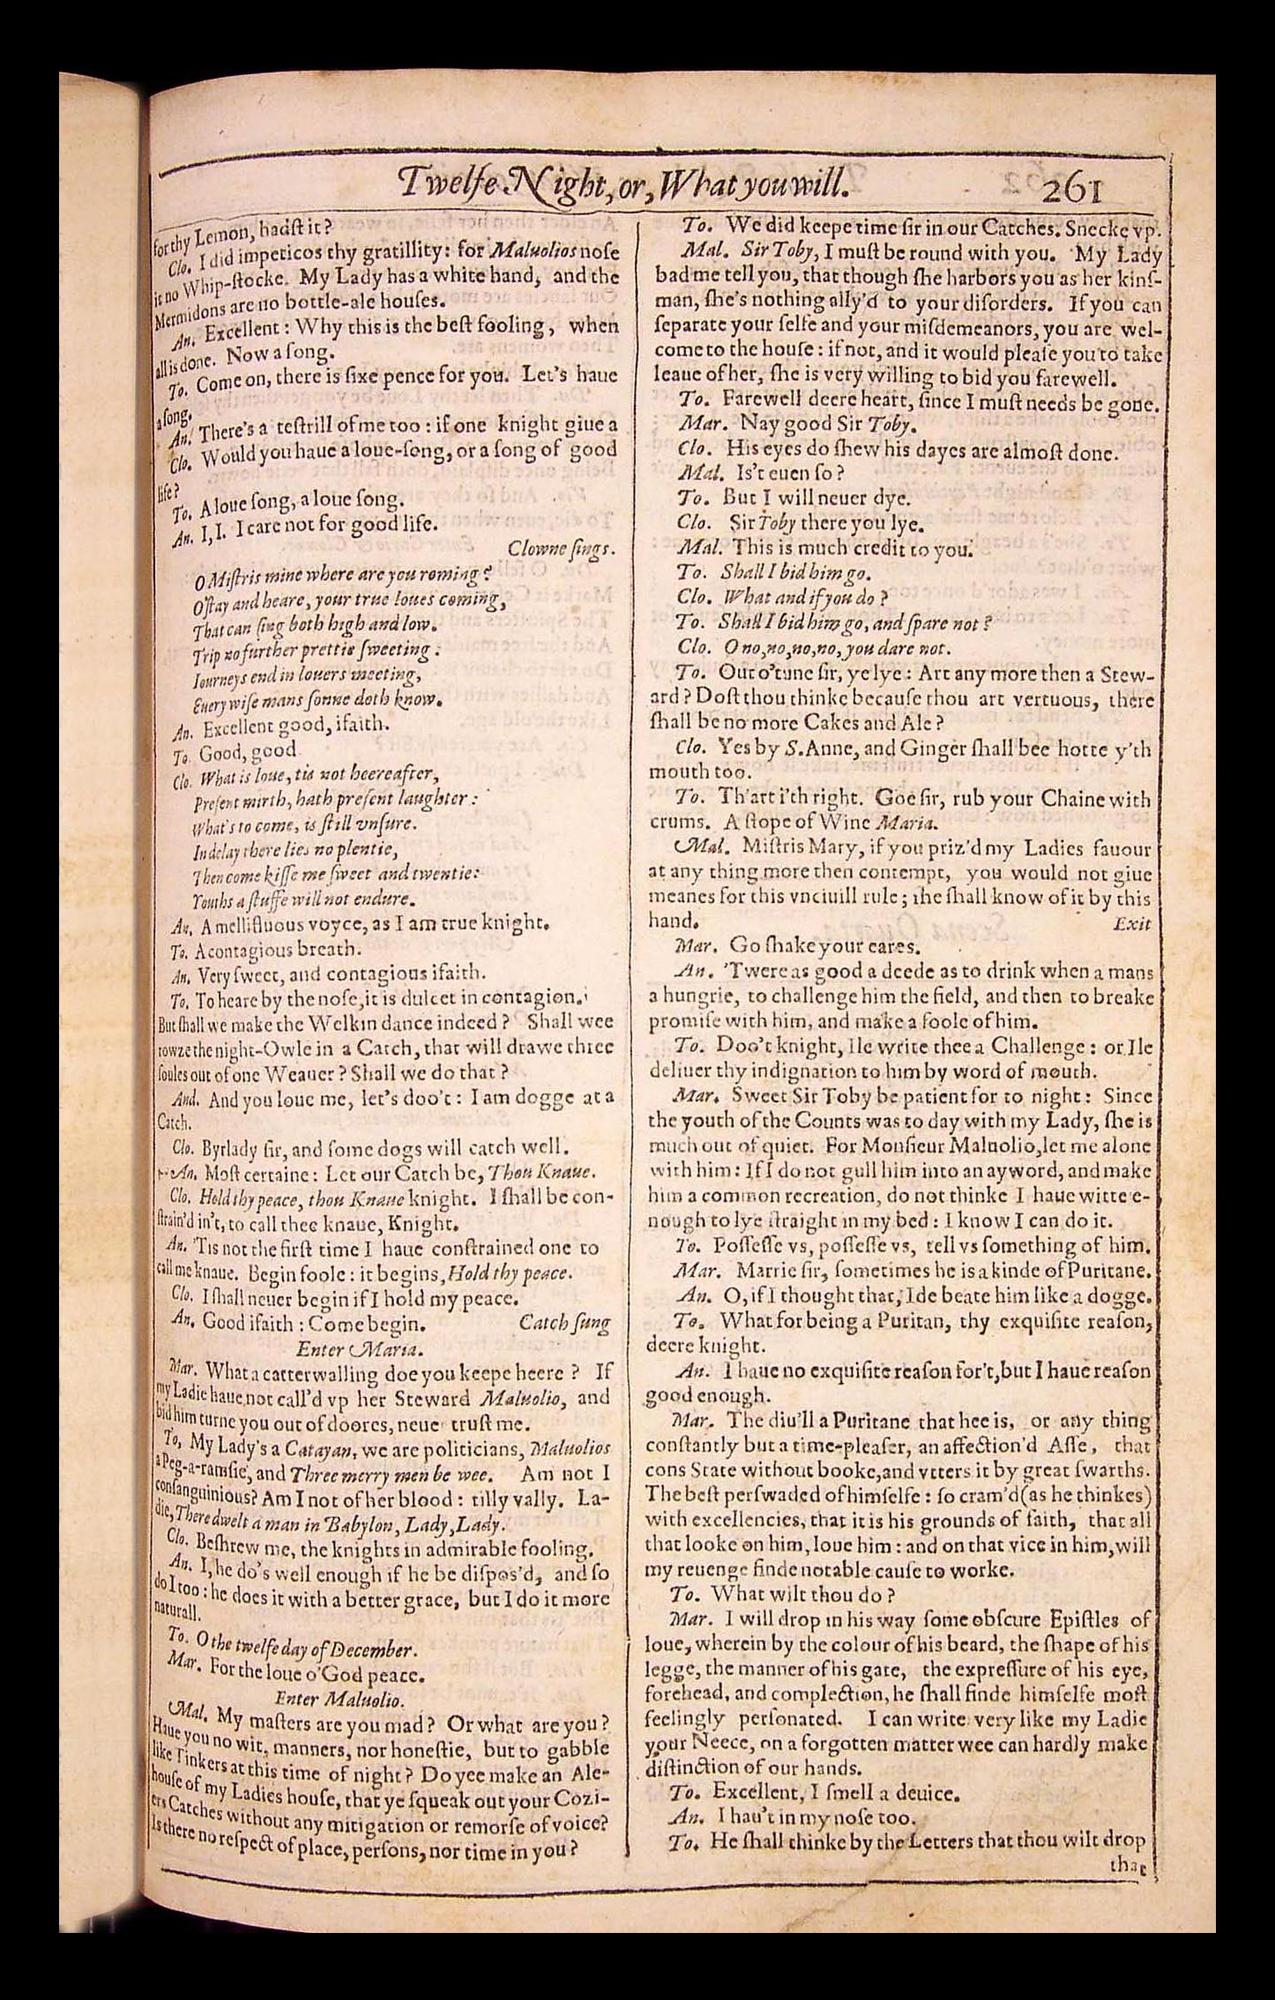 Twelfe Night, or, What you will. 261
for thy Lemon, hadſt it?
Clo. I did impeticos thy gratillity: for Maluolios noſe
it no Whip-ſtocke. My Lady has a white hand, and the
Mermidons are no bottle-ale houſes.
An. Excellent: Why this is the beſt fooling, when
all is done. Now a ſong.
To. Come on, there is ſixe pence for you. Let's haue
a ſong.
An. There's a teſtrill of me too: if one knight giue a
Clo. Would you haue a loue-ſong, or a ſong of good
life?
To. A loue ſong, a loue ſong.
An. I, I. I care not for good life.
Clowne ſings.
O Miſtris mine where are you roming?
O ſtay and heare, your true loues coming,
That can ſing both high and low.
Trip no further prettie ſweeting:
Iourneys end in louers meeting,
Euery wiſe mans ſonne doth know.
An. Excellent good, ifaith.
To. Good, good
Clo. What is loue, tis not heereafter,
Preſent mirth, hath preſent laughter:
What's to come, is ſtill vnſure.
In delay there lies no plentie,
Then come kiſſe me ſweet and twentie:
Youths a ſtuffe will not endure.
An. A mellifluous voyce, as I am true knight.
To. A contagious breath.
An. Very ſweet, and contagious ifaith.
To. To heare by the noſe, it is dulcet in contagion.
But ſhall we make the Welkin dance indeed? Shall wee
rowze the night-Owle in a Catch, that will drawe three
ſoules out of one Weauer? Shall we do that?
And. And you loue me, let's doo't: I am dogge at a
Catch.
Clo. Byrlady ſir, and ſome dogs will catch well.
An. Moſt certaine: Let our Catch be, Thou Knaue.
Clo. Hold thy peace, thou Knaue knight. I ſhall be con-
ſtrain'd in't, to call thee knaue, Knight.
An. 'Tis not the firſt time I haue conſtrained one to
call me knaue. Begin foole: it begins, Hold thy peace.
Clo. I ſhall neuer begin if I hold my peace.
An. Good ifaith: Come begin. Catch ſung
Enter Maria.
Mar. What a catterwalling doe you keepe heere? If
my Ladie haue not call'd vp her Steward Maluolio, and
bid him turne you out of doores, neue truſt me.
To. My Lady's a Catayan, we are politicians, Maluolios
a Peg-a-ramſie, and Three merry men be wee. Am not I
conſanguinious? Am I not of her blood: tilly vally. La-
die, There dwelt a man in Babylon, Lady, Lady.
Clo. Beſhrew me, the knights in admirable fooling.
An. I, he do's well enough if he be diſpos'd, and ſo
do I too: he does it with a better grace, but I do it more
naturall.
To. O the twelfe day of December.
Mar. For the loue o'God peace.
Enter Maluolio.
Mal. My maſters are you mad? Or what are you?
Haue you no wit, manners, nor honeſtie, but to gabble
like Tinkers at this time of night? Do yee make an Ale-
houſe of my Ladies houſe, that ye ſqueak out your Cozi-
ers Catches without any mitigation or remorſe of voice?
Is there no reſpect of place, perſons, nor time in you?
To. We did keepe time ſir in our Catches. Snecke vp.
Mal. Sir Toby, I muſt be round with you. My Lady
bad me tell you, that though ſhe harbors you as her kinſ-
man, ſhe's nothing ally'd to your diſorders. If you can
ſeparate your ſelfe and your miſdemeanors, you are wel-
come to the houſe: if not, and it would pleaſe you to take
leaue of her, ſhe is very willing to bid you farewell.
To. Farewell deere heart, ſince I muſt needs be gone.
Mar. Nay good Sir Toby.
Clo. His eyes do ſhew his dayes are almoſt done.
Mal. Is't euen ſo?
To. But I will neuer dye.
Clo. Sir Toby there you lye.
Mal. This is much credit to you.
To. Shall I bid him go.
Clo. What and if you do?
To. Shall I bid him go, and ſpare not?
Clo. O no, no, no, no, you dare not.
To. Out o'tune ſir, ye lye: Art any more then a Stew-
ard? Doſt thou thinke becauſe thou art vertuous, there
ſhall be no more Cakes and Ale?
Clo. Yes by S. Anne, and Ginger ſhall bee hotte y'th
mouth too.
To. Th'art i'th right. Goe ſir, rub your Chaine with
crums. A ſtope of Wine Maria.
Mal. Miſtris Mary, if you priz'd my Ladies fauour
at any thing more then contempt, you would not giue
meanes for this vnciuill rule; ſhe ſhall know of it by this
hand. Exit
Mar. Go ſhake your eares.
An. 'Twere as good a deede as to drink when a mans
a hungrie, to challenge him the field, and then to breake
promiſe with him, and make a foole of him.
To. Doo't knight, Ile write thee a Challenge: or Ile
deliuer thy indignation to him by word of mouth.
Mar. Sweet Sir Toby be patient for to night: Since
the youth of the Counts was to day with my Lady, ſhe is
much out of quiet. For Monſieur Maluolio, let me alone
with him: If I do not gull him into an ayword, and make
him a common recreation, do not thinke I haue witte e-
nough to lye ſtraight in my bed: I know I can do it.
To. Poſſeſſe vs, poſſeſſe vs, tell vs ſomething of him.
Mar. Marrie ſir, ſometimes he is a kinde of Puritane.
An. O, if I thought that, Ide beate him like a dogge.
To. What for being a Puritan, thy exquiſite reaſon,
deere knight.
An. I haue no exquiſite reaſon for't, but I haue reaſon
good enough.
Mar. The diu'll a Puritane that hee is, or any thing
conſtantly but a time-pleaſer, an affection'd Aſſe, that
cons State without booke, and vtters it by great ſwarths.
The beſt perſwaded of himſelfe: ſo cram'd (as he thinkes)
with excellencies, that it is his grounds of faith, that all
that looke on him, loue him: and on that vice in him, will
my reuenge finde notable cauſe to worke.
To. What wilt thou do?
Mar. I will drop in his way ſome obſcure Epiſtles of
loue, wherein by the colour of his beard, the ſhape of his
legge, the manner of his gate, the expreſſure of his eye,
forehead, and complection, he ſhall finde himſelfe moſt
feelingly perſonated. I can write very like my Ladie
your Neece, on a forgotten matter wee can hardly make
diſtinction of our hands.
To. Excellent, I ſmell a deuice.
An. I hau't in my noſe too.
To. He ſhall thinke by the Letters that thou wilt drop
that